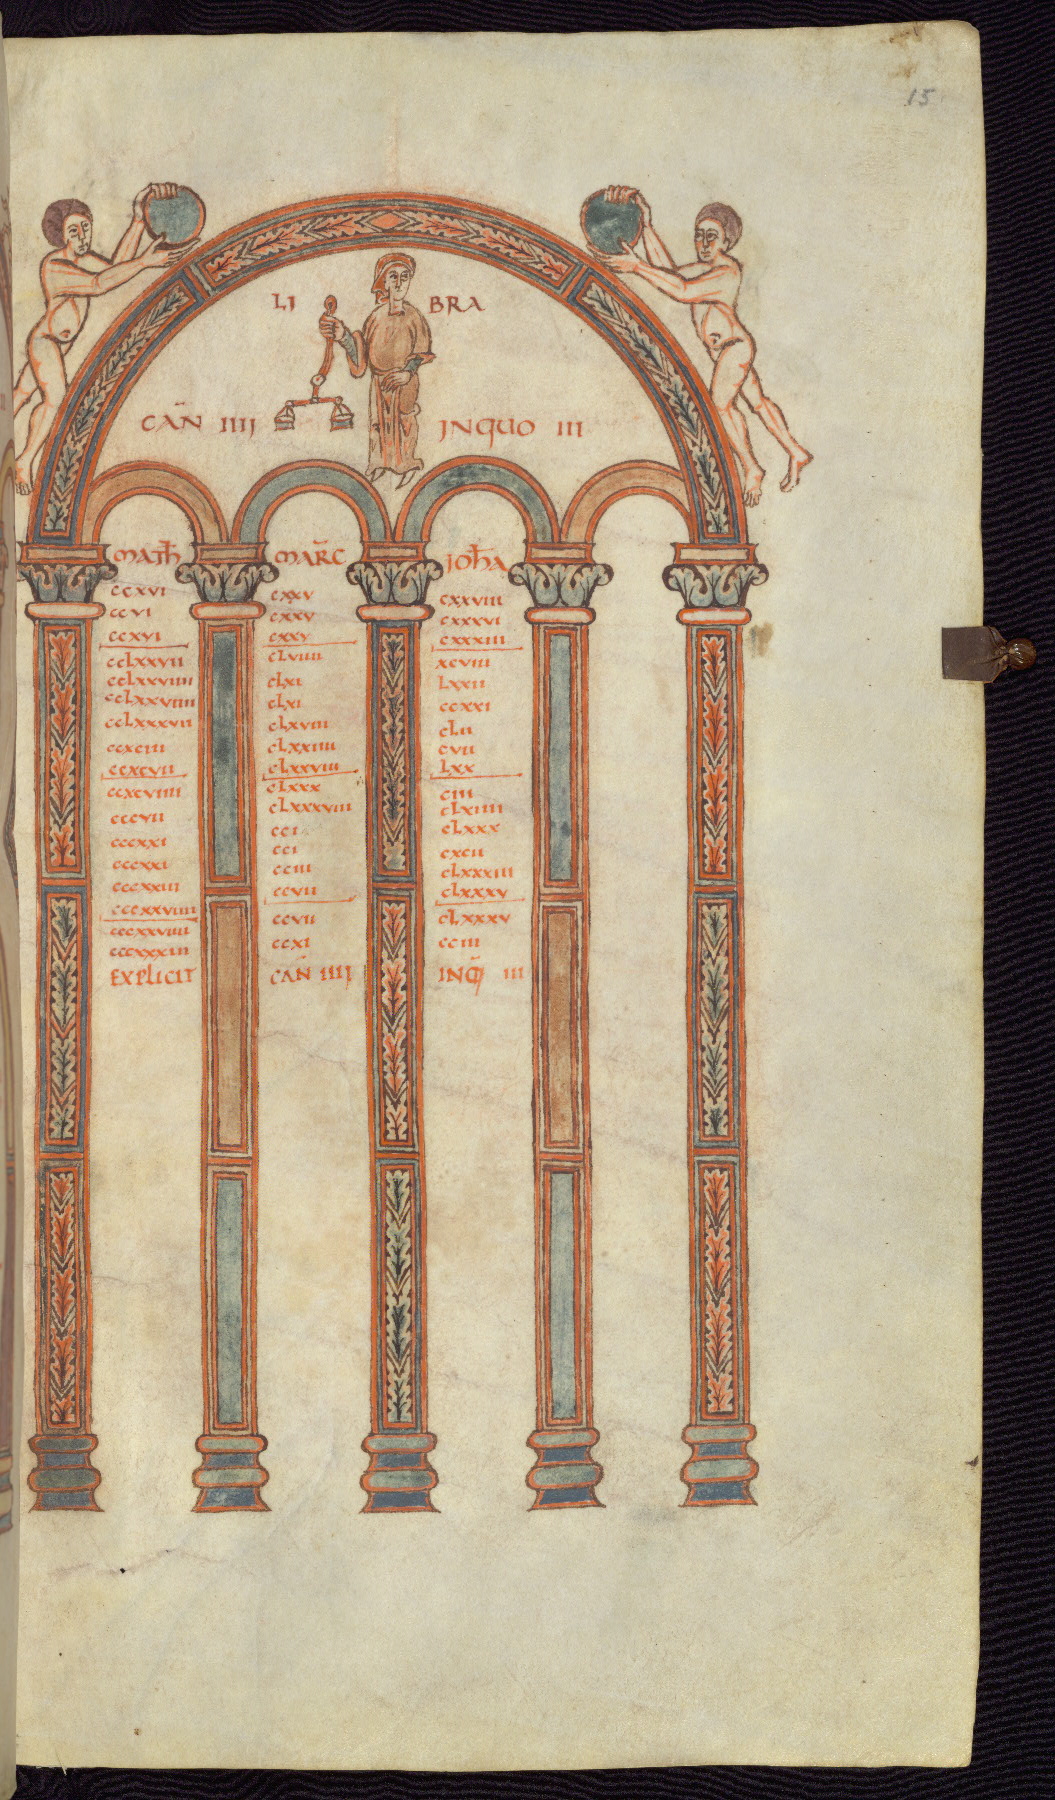 15
LI BRA
CAN̄ IIIJ INQUO III
MATH̄ MAR̄C JOH̄A
ccxvi cxxv cxxviii
ccvi cxxv cxxxvi
ccxvi cxxv cxxxiii
ccLxxvii cLviiii xcviii
ccLxxviiii cLxi Lxxii
ccLxxviiii cLxi ccxxi
ccLxxxvii cLxviii cLii
ccxciii cLxxiiii cvii
ccxcvii cLxxviii Lxx
ccxcviiii cLxxx ciii
cccvii cLxxxviii cLxiiii
cccxxi cci cLxxx
cccxxi cci cxcii
cccxxiii cciii cLxxxiii
cccxxviiii ccvii cLxxxv
cccxxviiii ccvii cLxxxv
cccxxxiii ccxi cciii
EXPLICIT CAN̄ IIIJ INQ̄ III